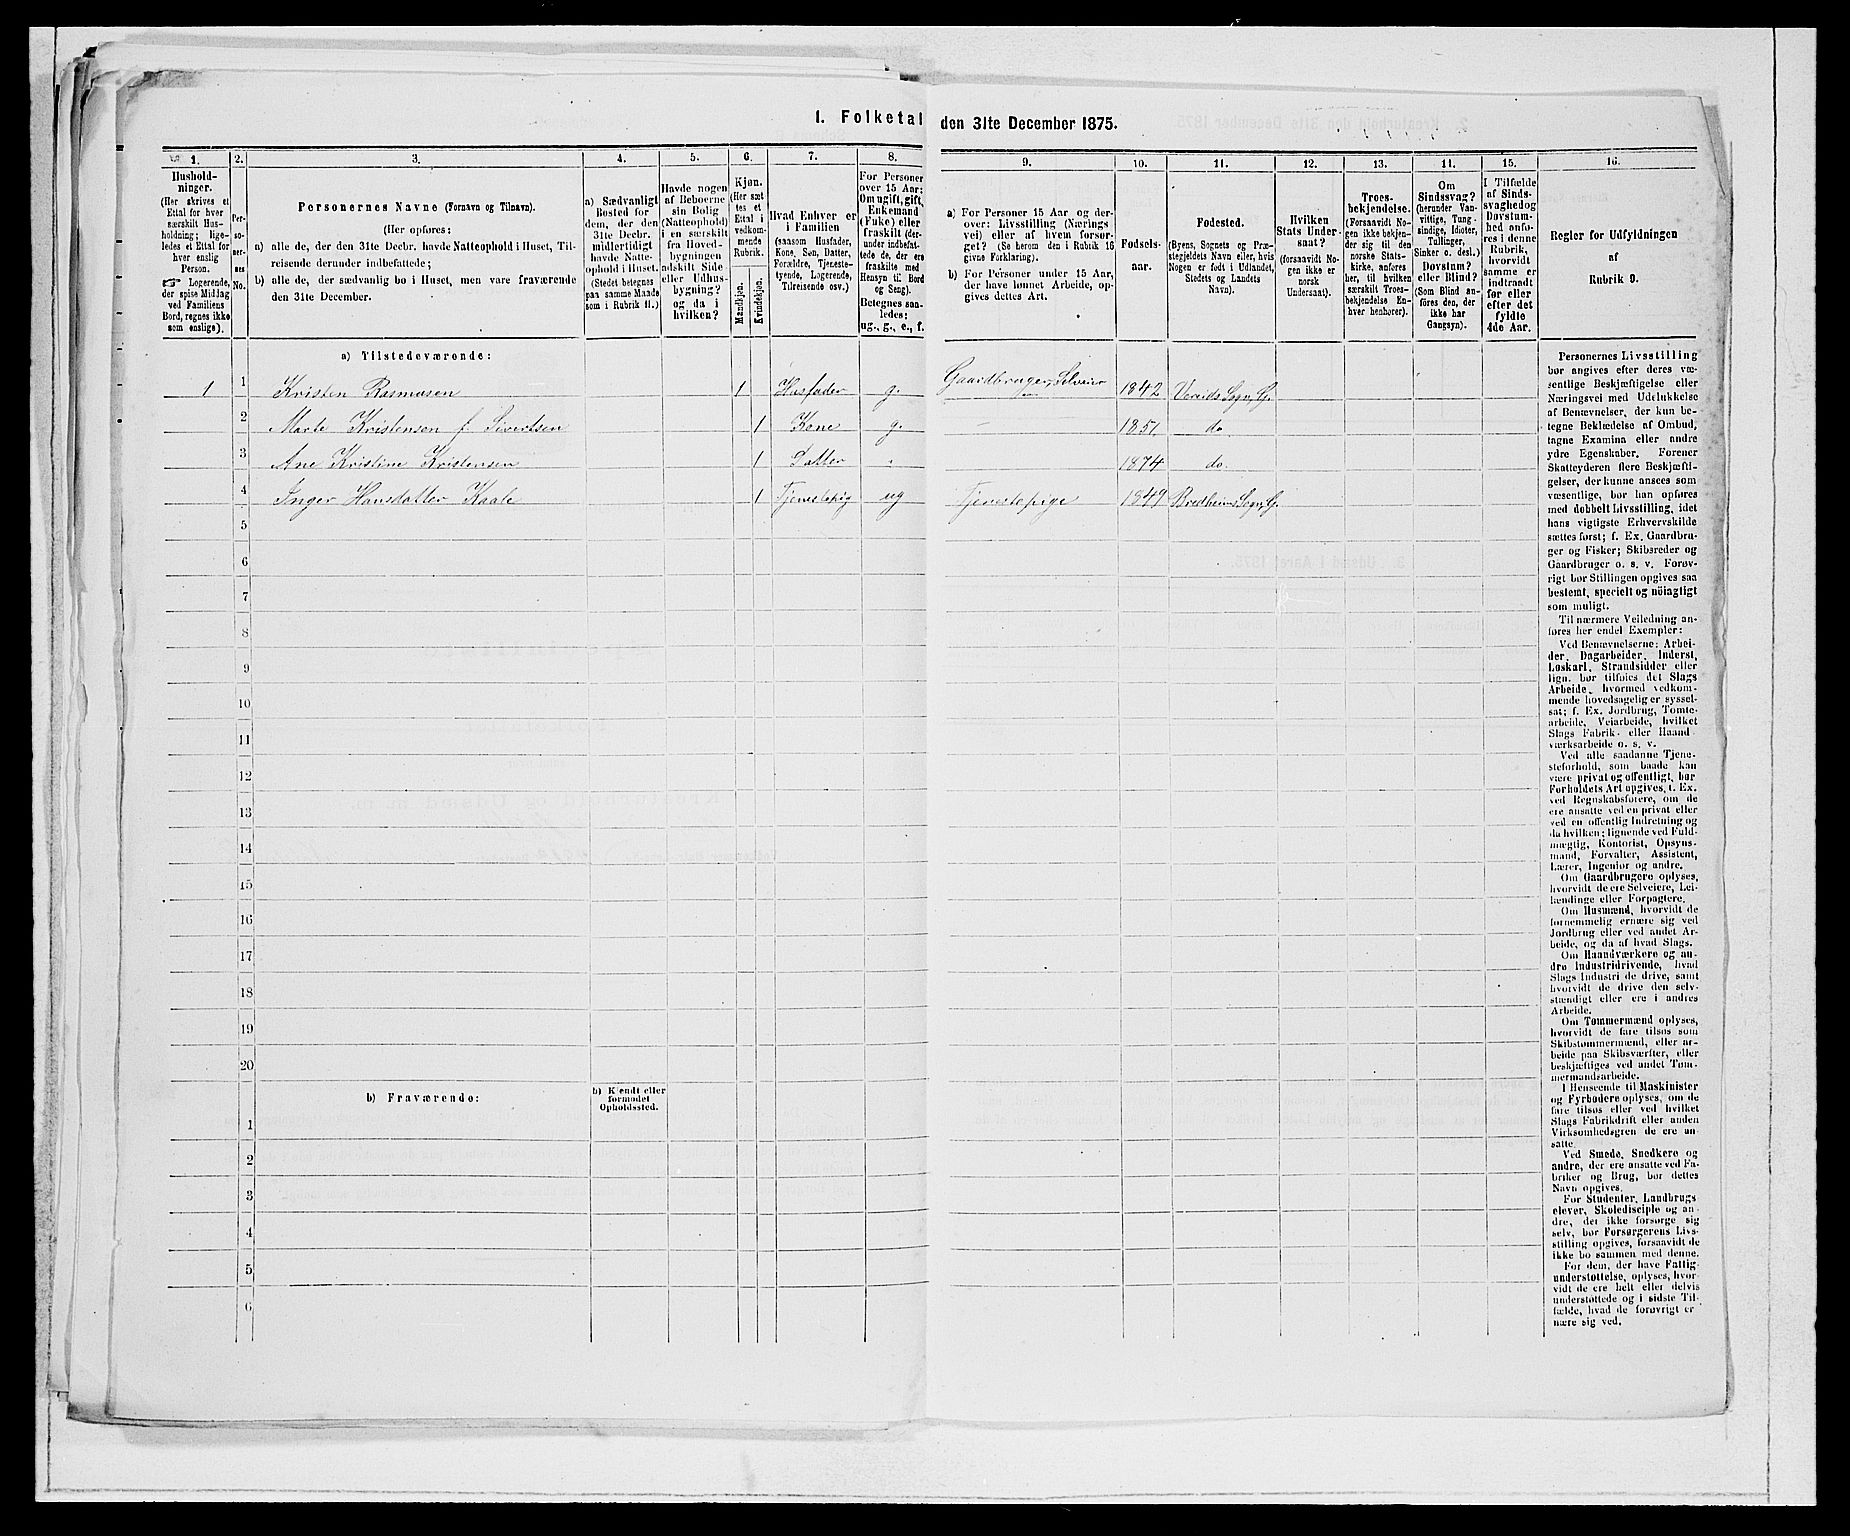 1. Folketal den 31te December 1875.
1.
2.
3.
4.
5.
6.
7.
8.
9.
10.
11.
12.
13.
14.
15.
16.
Hushold-
ninger.
(Her skrives et
Ettal for hver
særskilt Hus-
holdning; lige-
ledes et Ettal for
hver enslig
Person.
☞ Logerende,
der spise Middag
ved Familiens
Bord, regnes ikke
som enslige).
Per-
so-
ner-
nes
No.
Personernes Navne (Fornavn og Tilnavn).
(Her opføres:
a) alle de, der den 31te Decbr. havde Natteophold i Huset, Til-
reisende derunder indbefattede;
b) alle de, der sædvanlig bo i Huset, men vare fraværende
den 31te December.
a) Sædvanligt
Bosted for
dem, der den
31te Decbr.
midlertidigt
havde Natte-
ophold i Huset.
(Stedet betegnes
paa samme Maade
som i Rubrik 11.)
Havde nogen
af Beboerne
sin Bolig
(Natteophold)
i en særskilt
fra Hoved-
bygningen
adskilt Side-
eller Udhus-
bygning?
og da i
hvilken?
Kjøn.
(Her sæt-
tes et
Ettal i
vedkom-
mende
Rubrik.
Mandkjøn.
Kvindekjøn.
Hvad Enhver er
i Familien
(saasom Husfader,
Kone, Søn, Datter,
Forældre, Tjeneste-
tyende, Logerende,
Tilreisende osv.)
For Personer
over 15 Aar:
Om ugift, gift,
Enkemand
(Enke) eller
fraskilt (der-
under indbefat-
tede de, der ere
fraskilte med
Hensyn til Bord
og Seng).
Betegnes saa-
ledes:
ug., g., e., f.
a) For Personer 15 Aar og der-
over: Livsstilling (Nærings-
vei) eller af hvem forsør-
get? (Se herom den i Rubrik 16
givne Forklaring).
b) For Personer under 15 Aar,
der have lønnet Arbeide, op-
gives dettes Art.
Fødsels-
aar.
Fødested.
(Byens, Sognets og Præ-
stegjeldets Navn eller, hvis
Nogen er født i Udlandet,
Stedets og Landets
Navn).
Hvilken
Stats Under-
saat?
(forsaavidt No-
gen ikke er
norsk
Undersaat).
Troes-
bekjendelse.
(Forsaavidt No-
gen ikke bekjen-
der sig til den
norske Stats-
kirke, anføres
her, til hvilken
særskilt Troes-
bekjendelse En-
hver henhører).
Om
Sindssvag?
(herunder Van-
vittige, Tung-
sindige, Idioter,
Tullinger,
Sinker o. desl.)
Døvstum?
eller Blind?
(Som Blind an-
føres den, der
ikke har
Gangsyn).
I Tilfælde
af Sinds-
svaghed og
Døvstum-
hed anfø-
res i denne
Rubrik,
hvorvidt
samme er
indtraadt
før eller
efter det
fyldte
4de Aar.
Regler for Udfyldningen
af
Rubrik 9.
a) Tilstedeværende:
1 1 Kristen Rasmusen 1 Husfader g. Gaardbruger, Selveier 1842 Vereids Sogn, G.
2 Marte Kristensen f. Sivertsen 1 Kone g. — 1851. do
3 Ane Kristine Kristensen 1 Datter 1874 do.
4 Inger Hansdatter Kaale 1 Tjenestepig ug Tjenestepige 1849 Bredheims Sogn, G.
5
6
7
8
9
10
11
12
13
14
15
16
17
18
19
20
b) Fraværende:
b) Kjendt eller
formodet
Opholdssted.
1
2
3
4
5
6
Personernes Livsstilling
bør angives efter deres væ-
sentlige Beskjæftigelse eller
Næringsvei med Udelukkelse
af Benævnelser, der kun be-
tegne Beklædelse af Ombud,
tagne Examina eller andre
ydre Egenskaber. Forener
Skatteyderen flere Beskjæfti-
gelser, der kunne ansees som
væsentlige, bør han opføres
med dobbelt Livsstilling, idet
hans vigtigste Erhvervskilde
sættes først; f. Ex. Gaardbru-
ger og Fisker; Skibsreder og
Gaardbruger o. s. v. Forøv-
rigt bør Stillingen opgives saa
bestemt, specielt og nöiagtigt
som muligt.
Til nærmere Veiledning an-
føres her endel Exempler:
Ved Benævnelserne: Arbei-
der, Dagarbeider, Inderst,
Løskarl, Strandsidder eller
lign. bør tilføies det Slags
Arbeide, hvormed vedkom-
mende hovedsagelig er syssel-
sat; f. Ex. Jordbrug, Tomte-
arbeide, Veiarbeide, hvilket
Slags Fabrik- eller Haand-
værksarbeide o. s. v.
Ved alle saadanne Tjene-
steforhold, som baade kan
være privat og offentligt, bør
Forholdets Art opgives, f. Ex.
ved Regnskabsførere, om de
ere ansatte ved en privat eller
ved en offentlig Indretning og
da hvilken; lignende ved Fuld-
mægtig, Kontorist, Opsyns-
mand, Forvalter, Assistent,
Lærer, Ingeniør og andre.
Om Gaardbrugere oplyses,
hvorvidt de ere Selveiere, Lei-
lændinge eller Forpagtere.
Om Husmænd, hvorvidt de
fornemmelig ernære sig ved
Jordbrug eller ved andet Ar-
beide, og da af hvad Slags.
Om Haandværkere og an-
dre Industridrivende, hvad
Slags Industri de drive, samt
hvorvidt de drive den selv-
stændigt eller ere i andres
Arbeide.
Om Tømmermænd oplyses,
hvorvidt de fare tilsøs som
Skibstømmermænd, eller ar-
beide paa Skibsværfter, eller
beskjæftiges ved andet Tøm-
mermandsarbeide.
I Henseende til Maskinister
og Fyrbødere oplyses, om de
fare tilsøs eller ved hvilket
Slags Fabrikdrift eller anden
Virksomhedsgren de ere an-
satte.
Ved Smede, Snedkere og
andre, der ere ansatte ved Fa-
briker og Brug, bør dettes
Navn opgives.
For Studenter, Landbrugs-
elever, Skoledisciple og an-
dre, der ikke forsørge sig
selv, bør Forsørgerens Livs-
stilling opgives, forsaavidt de
ikke bo sammen med denne.
For dem, der have Fattig-
understøttelse, oplyses, hvor-
vidt de ere helt eller delvis
understøttede og i sidste Til-
fælde, hvad de forøvrigt er-
nære sig ved.